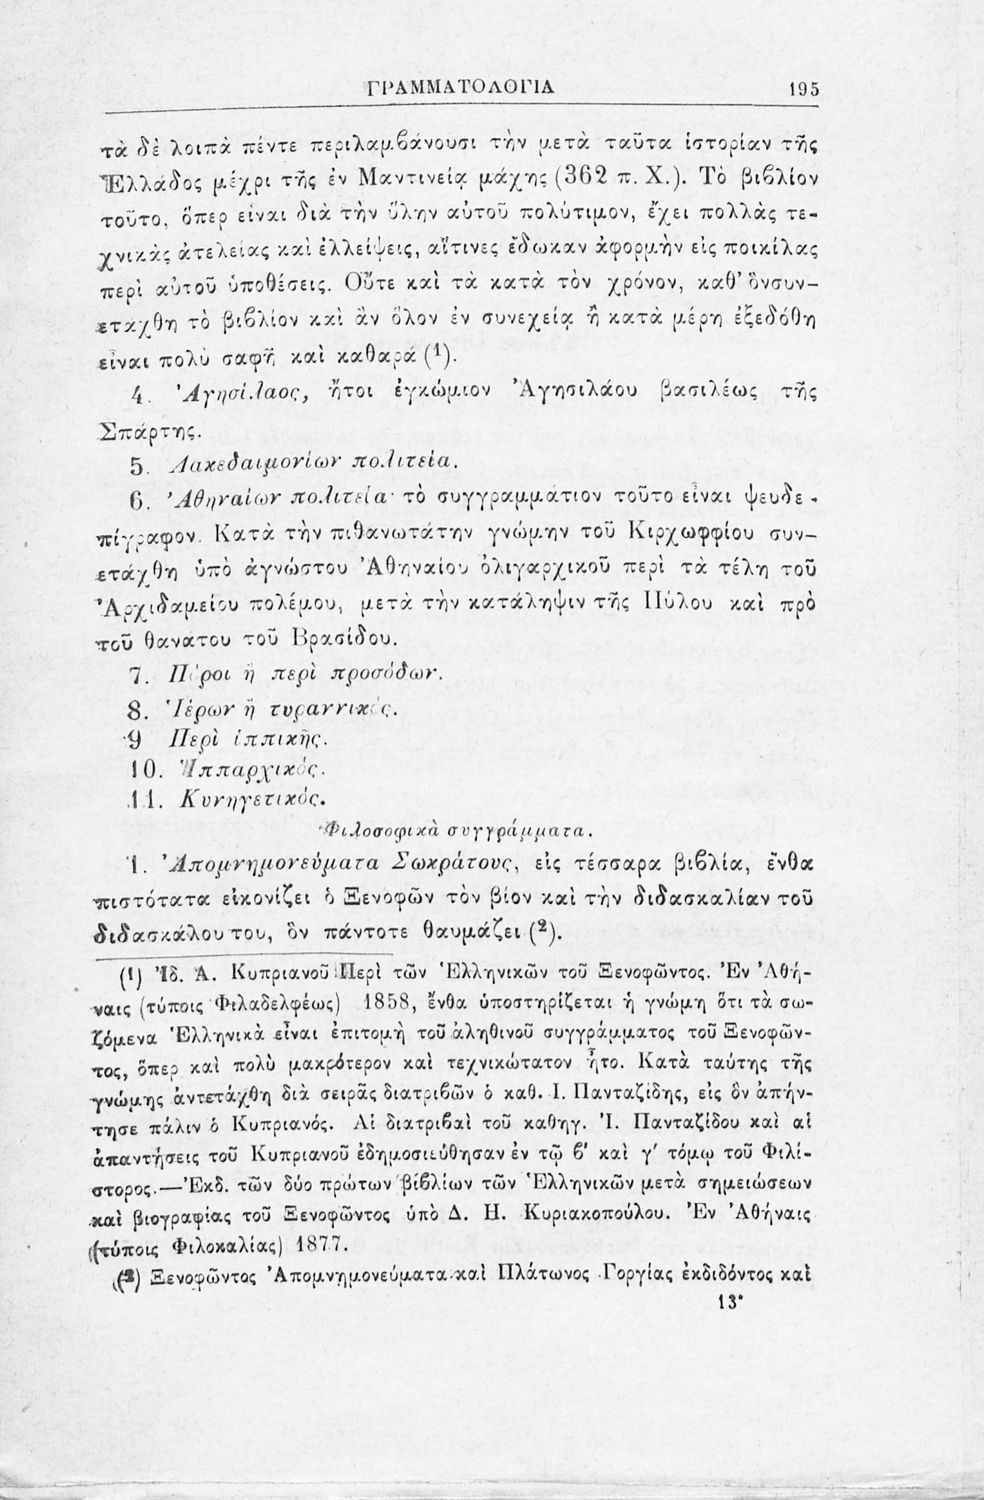 ΓΡΑΜΜΑΤΟΛΟΓΙΑ 195
τὰ δὲ λοιπὰ πέντε περιλαμβάνουσι τὴν μετὰ ταῦτα ἱστορίαν τῆς
Ἑλλάδος μέχρι τῆς ἐν Μαντινείᾳ μάχης (362 π. Χ.). Τὸ βιβλίον
τοῦτο, ὅπερ εἶναι διὰ τὴν ὕλην αὐτοῦ πολύτιμον, ἔχει πολλὰς τε-
χνικὰς ἀτελείας καὶ ἐλλείψεις, αἵτινες ἔδωκαν ἀφορμὴν εἰς ποικίλας
περὶ αὐτοῦ ὑποθέσεις. Οὔτε καὶ τὰ κατὰ τὸν χρόνον, καθ' ὃνσυν-
ετάχθη τὸ βιβλίον καὶ ἂν ὅλον ἐν συνεχείᾳ ἢ κατὰ μέρη ἐξεδόθη
εἶναι πολὺ σαφῆ καὶ καθαρά (1).
4. Ἀγησίλαος, ἤτοι ἐγκώμιον Ἀγησιλάου βασιλέως τῆς
Σπάρτης.
5. Λακεδαιμονίων πολιτεία.
6. Ἀθηναίων πολιτεία· τὸ συγγραμμάτιον τοῦτο εἶναι ψευδε-
πίγραφον. Κατὰ τὴν πιθανωτάτην γνώμην τοῦ Κιρχωφφίου συν-
ετάχθη ὑπὸ ἀγνώστου Ἀθηναίου ὀλιγαρχικοῦ περὶ τὰ τέλη τοῦ
Ἀρχιδαμείου πολέμου, μετὰ τὴν κατάληψιν τῆς Πύλου καὶ πρὸ
τοῦ θανάτου τοῦ Βρασίδου.
7. Πόροι ἢ περὶ προσόδων.
8. Ἱέρων ἢ τυραννικός.
9 Περὶ ἱππικῆς.
10. Ἱππαρχικός.
11. Κυνηγετικός.
Φιλοσοφικὰ συγγράμματα.
1. Ἀπομνημονεύματα Σωκράτους, εἰς τέσσαρα βιβλία, ἔνθα
πιστότατα εἰκονίζει ὁ Ξενοφῶν τὸν βίον καὶ τὴν διδασκαλίαν τοῦ
διδασκάλου του, ὃν πάντοτε θαυμάζει (2).
(1) Ἰδ. Ἀ. Κυπριανοῦ Περὶ τῶν Ἑλληνικῶν τοῦ Ξενοφῶντος. Ἐν Ἀθή-
ναις (τύποις Φιλαδελφέως) 1858, ἔνθα ὑποστηρίζεται ἡ γνώμη ὅτι τὰ σω-
ζόμενα Ἑλληνικὰ εἶναι ἐπιτομὴ τοῦ ἀληθινοῦ συγγράμματος τοῦ Ξενοφῶν-
τος, ὅπερ καὶ πολὺ μακρότερον καὶ τεχνικώτατον ἦτο. Κατὰ ταύτης τῆς
γνώμης ἀντετάχθη διὰ σειρᾶς διατριβῶν ὁ καθ. Ι. Πανταζίδης, εἰς ὃν ἀπήν-
τησε πάλιν ὁ Κυπριανός. Αἱ διατριβαὶ τοῦ καθηγ. Ἰ. Πανταζίδου καὶ αἱ
ἀπαντήσεις τοῦ Κυπριανοῦ ἐδημοσιεύθησαν ἐν τῷ β' καὶ γ' τόμῳ τοῦ Φιλί-
στορος.—Ἐκδ. τῶν δύο πρώτων βιβλίων τῶν Ἑλληνικῶν μετὰ σημειώσεων
καὶ βιογραφίας τοῦ Ξενοφῶντος ὑπὸ Δ. Η. Κυριακοπούλου. Ἐν Ἀθήναις
(τύποις Φιλοκαλίας) 1877.
(2) Ξενοφῶντος Ἀπομνημονεύματα καὶ Πλάτωνος Γοργίας ἐκδιδόντος καὶ
13*